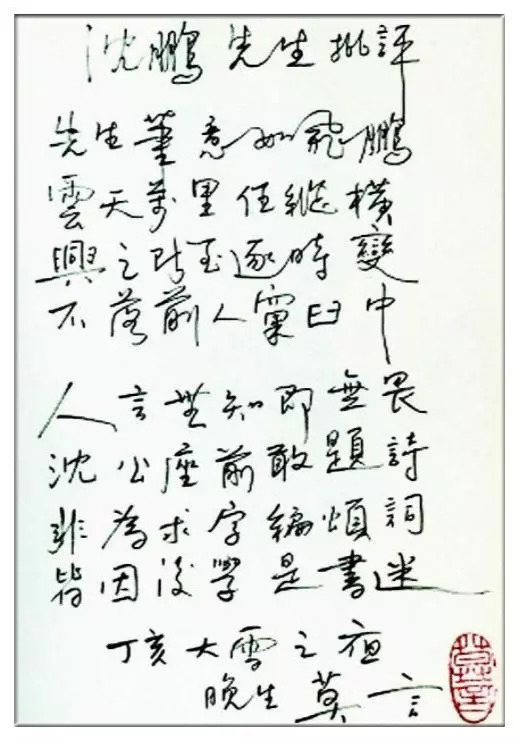 沈鵬先生批評
先生筆意如飛鵬
雲天萬里任縱橫
興之所至逐時變
不落前人窠臼中
人言無知即無畏
沈公座前敢題詩
非為求字編頌詞
皆因後學是書迷
丁亥大雪之夜
晚生莫言
莫言